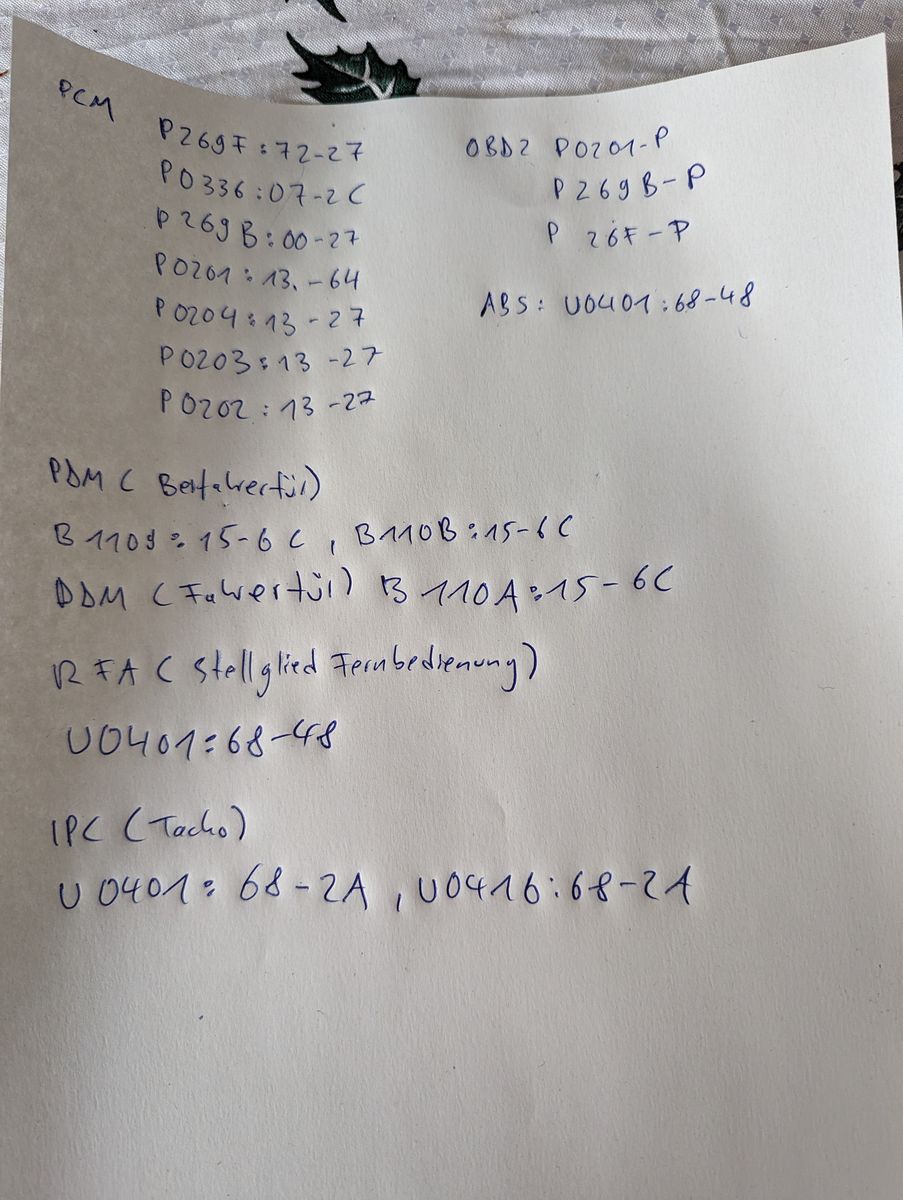 PCM
P269F:72-27
P0336:07-2C
P269B:00-27
P0201:13.-64
P0204:13-27
P0203:13-27
P0202:13-27
OBD2 P0201-P
P269B-P
P 26F-P
ABS: U0401:68-48
PDM (Beifahrertür)
B1109:15-6C, B110B:15-6C
DDM (Fahrertür) B110A:15-6C
RFA (Stellglied Fernbedienung)
U0401:68-48
IPC (Tacho)
U0401:68-2A, U0416:68-2A